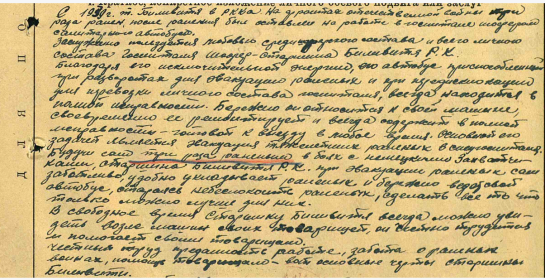 С 1939г. т. Билыбити в РККА. На фронтах отечественной войны три
раза ранен, после ранения был оставлен на работе в госпитале шофером
санитарного автобуса.
Заслуженно пользуется любовью среди рядового состава и всего личного
состава госпиталя шофер-старшина Р.К.
Благодаря его исключительной энергии, его автобус приспособленный
при разворотах для эвакуации раненых и при передислокации
для перевозки личного состава госпиталя, всегда находится в
полной исправности. Бережно он относится к своей машине,
своевременно ее ремонтирует и всегда содержит в полной
исправности - готовой к выезду в любое время. Основной его
задачей является эвакуация тяжелых раненых в спецгоспитали.
Будучи сам три раза раненый в боях с немецкими захватчи-
ками, старшина Р.К. при эвакуации раненых сам
заботливо, удобно укладывает раненых, и бережно ведет свой
автобус, стараясь не беспокоить раненых, сделать все то что
только можно лучше для них.
В свободное время старшину всегда можно уви-
деть возле машин своих товарищей, он честно трудится
и помогает своим товарищам.
Честный труд, преданность работе, забота о раненых
воинах, помощь товарищам - вот основные черты старшины
ДЛЯ ПО